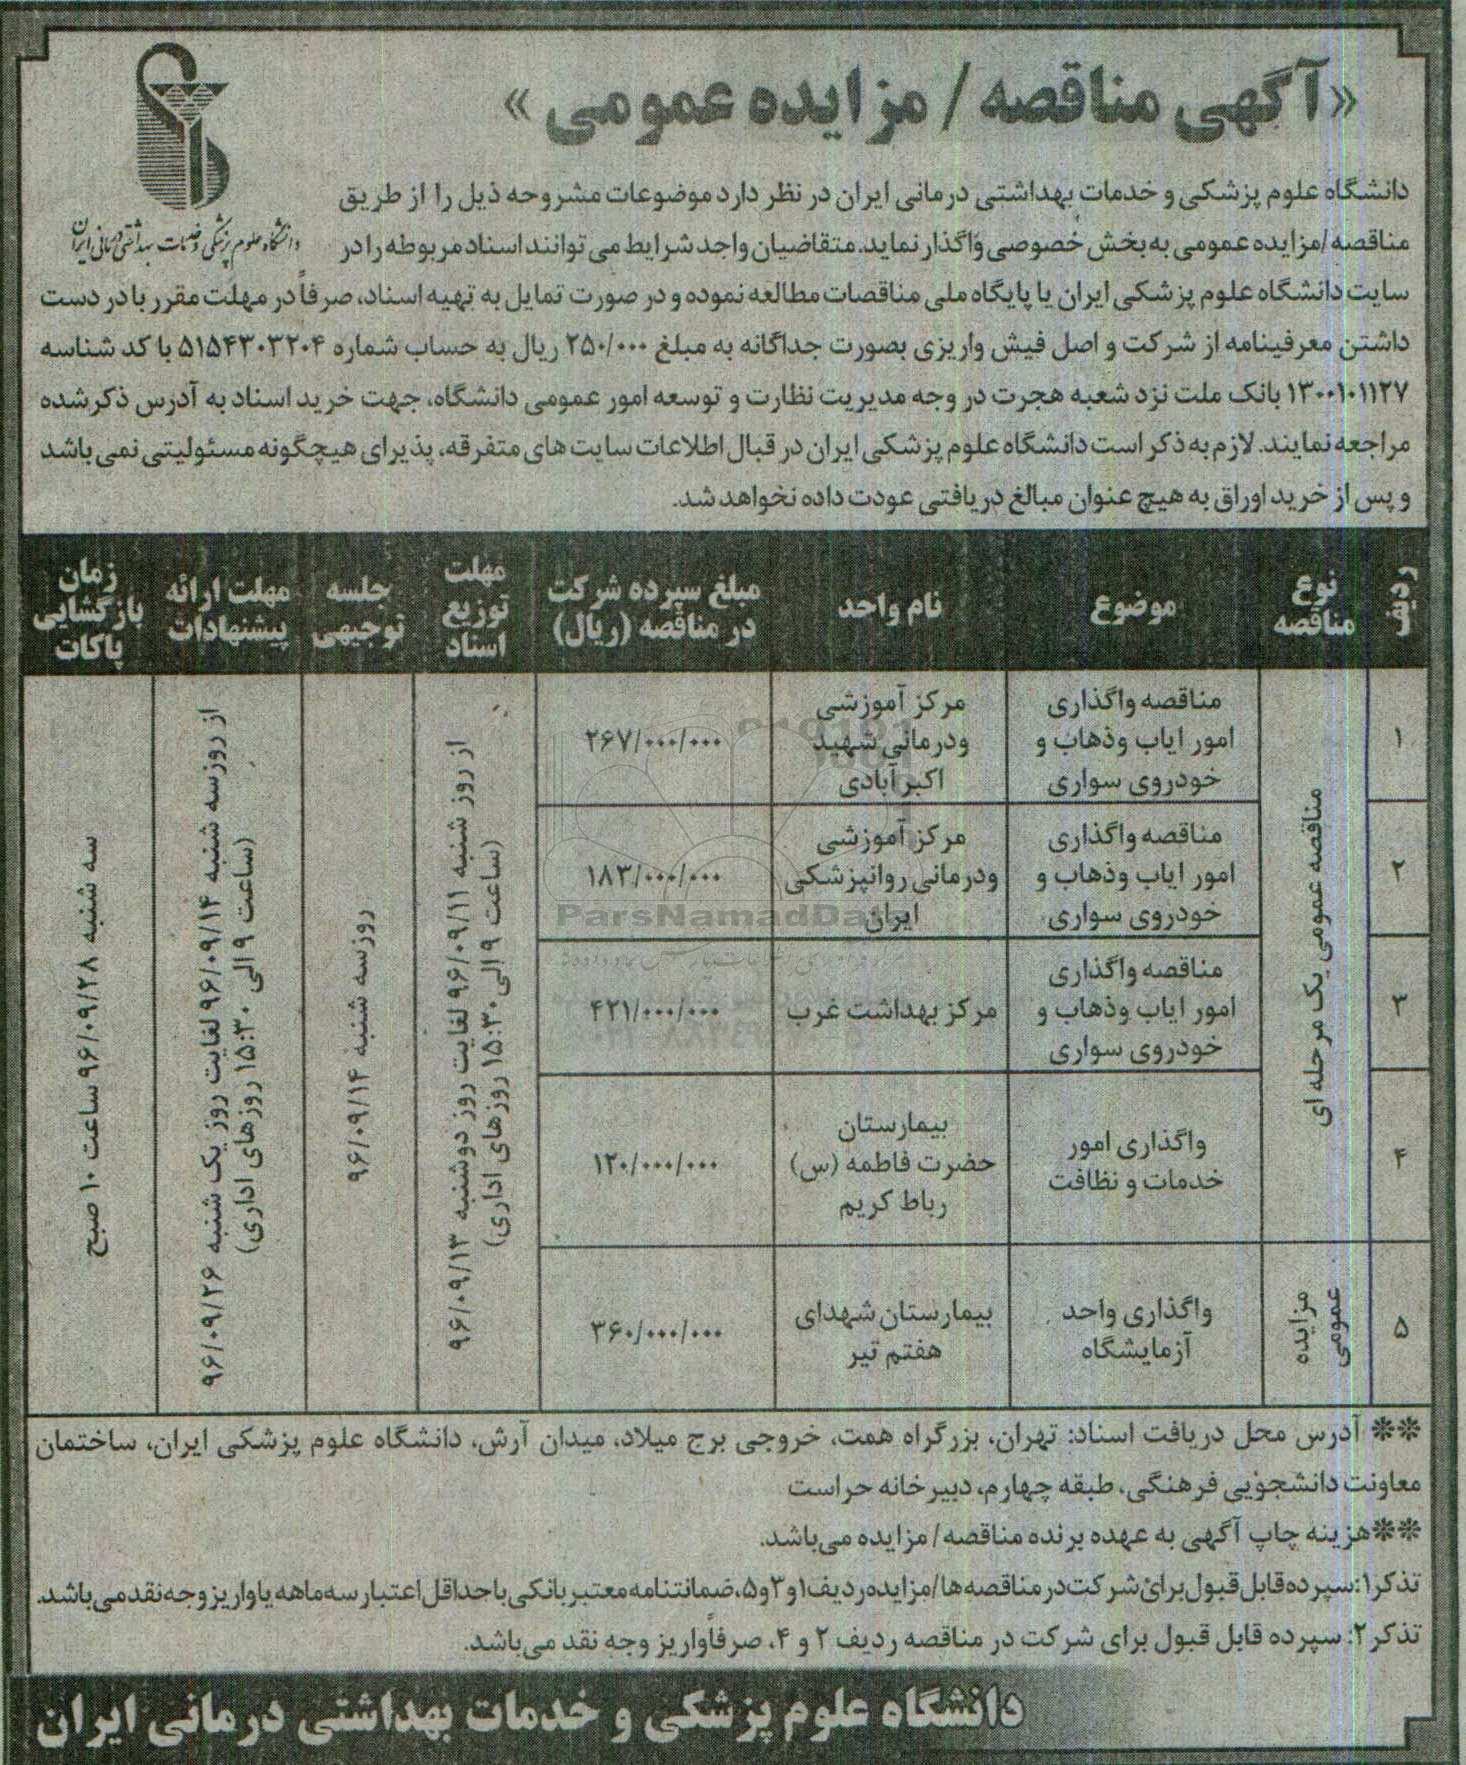 «آگهی مناقصه / مزایده عمومی»
دانشگاه علوم پزشکی و خدمات بهداشتی درمانی ایران
دانشگاه علوم پزشکی و خدمات بهداشتی درمانی ایران در نظر دارد موضوعات مشروحه ذیل را از طریق
مناقصه/مزایده عمومی به بخش خصوصی واگذار نماید. متقاضیان واجد شرایط می توانند اسناد مربوطه را در
سایت دانشگاه علوم پزشکی ایران یا پایگاه ملی مناقصات مطالعه نموده و در صورت تمایل به تهیه اسناد، صرفاً در مهلت مقرر با در دست
داشتن معرفینامه از شرکت و اصل فیش واریزی بصورت جداگانه به مبلغ ۲۵۰/۰۰۰ ریال به حساب شماره ۵۱۵۴۳۰۳۲۰۴ با کد شناسه
۱۳۰۰۱۰۱۱۲۷ بانک ملت نزد شعبه هجرت در وجه مدیریت نظارت و توسعه امور عمومی دانشگاه، جهت خرید اسناد به آدرس ذکر شده
مراجعه نمایند. لازم به ذکر است دانشگاه علوم پزشکی ایران در قبال اطلاعات سایت های متفرقه، پذیرای هیچگونه مسئولیتی نمی باشد
و پس از خرید اوراق به هیچ عنوان مبالغ دریافتی عودت داده نخواهد شد.
ردیف
نوع
مناقصه
موضوع
نام واحد
مبلغ سپرده شرکت
در مناقصه (ریال)
مهلت
توزیع
اسناد
جلسه
توجیهی
مهلت ارائه
پیشنهادات
زمان
بازگشایی
پاکات
۱
مناقصه واگذاری
امور ایاب وذهاب و
خودروی سواری
مرکز آموزشی
ودرمانی شهید
اکبرآبادی
۲۶۷/۰۰۰/۰۰۰
۲
مناقصه واگذاری
امور ایاب وذهاب و
خودروی سواری
مرکز آموزشی
ودرمانی روانپزشکی
ایران
۱۸۳/۰۰۰/۰۰۰
۳
مناقصه واگذاری
امور ایاب وذهاب و
خودروی سواری
مرکز بهداشت غرب
۴۲۱/۰۰۰/۰۰۰
۴
واگذاری امور
خدمات و نظافت
بیمارستان
حضرت فاطمه (س)
رباط کریم
۱۲۰/۰۰۰/۰۰۰
مناقصه عمومی یک مرحله ای
۵
مزایده
عمومی
واگذاری واحد
آزمایشگاه
بیمارستان شهدای
هفتم تیر
۳۶۰/۰۰۰/۰۰۰
از روز شنبه ۹۶/۰۹/۱۱ لغایت روز دوشنبه ۹۶/۰۹/۱۳
(ساعت ۹ الی ۱۵:۳۰ روزهای اداری)
روز سه شنبه ۹۶/۰۹/۱۴
از روز سه شنبه ۹۶/۰۹/۱۴ لغایت روز یک شنبه ۹۶/۰۹/۲۶
(ساعت ۹ الی ۱۵:۳۰ روزهای اداری)
سه شنبه ۹۶/۰۹/۲۸ ساعت ۱۰ صبح
ParsNamadData
** آدرس محل دریافت اسناد: تهران، بزرگراه همت، خروجی برج میلاد، میدان آرش، دانشگاه علوم پزشکی ایران، ساختمان
معاونت دانشجویی فرهنگی، طبقه چهارم، دبیرخانه حراست
**هزینه چاپ آگهی به عهده برنده مناقصه/مزایده می باشد.
تذکر۱: سپرده قابل قبول برای شرکت در مناقصه ها/مزایده ردیف ۱و۳و۵، ضمانتنامه معتبر بانکی با حداقل اعتبار سه ماهه یا واریز وجه نقد می باشد.
تذکر۲: سپرده قابل قبول برای شرکت در مناقصه ردیف ۲ و ۴، صرفاً واریز وجه نقد می باشد.
دانشگاه علوم پزشکی و خدمات بهداشتی درمانی ایران